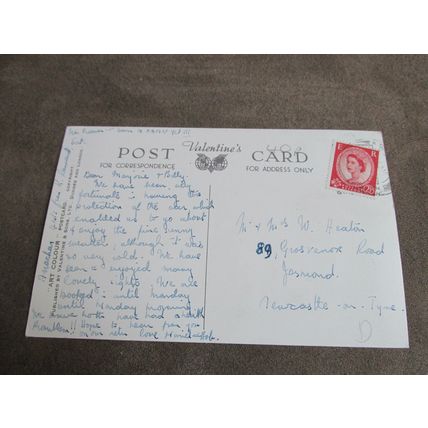 POST Valentine's CARD
FOR CORRESPONDENCE FOR ADDRESS ONLY
E R
2½D
Dear Marjorie + Billy,
We have been very
fortunate in having the
protection of the car which
enabled us to go about
+ enjoy the fine sunny
weather, although it was
so very cold. We have
seen + enjoyed many
lovely sights. We are
booked until Monday
until Monday morning
We have both have had
Hope to hear from you
on our return. Love
Mr & Mrs W. Heaton
89, Grosvenor Road
Jesmond,
Newcastle-on-Tyne.
D
"ART COLOUR" POSTCARD
PUBLISHED BY VALENTINE & SONS, LTD., DUNDEE AND LONDON